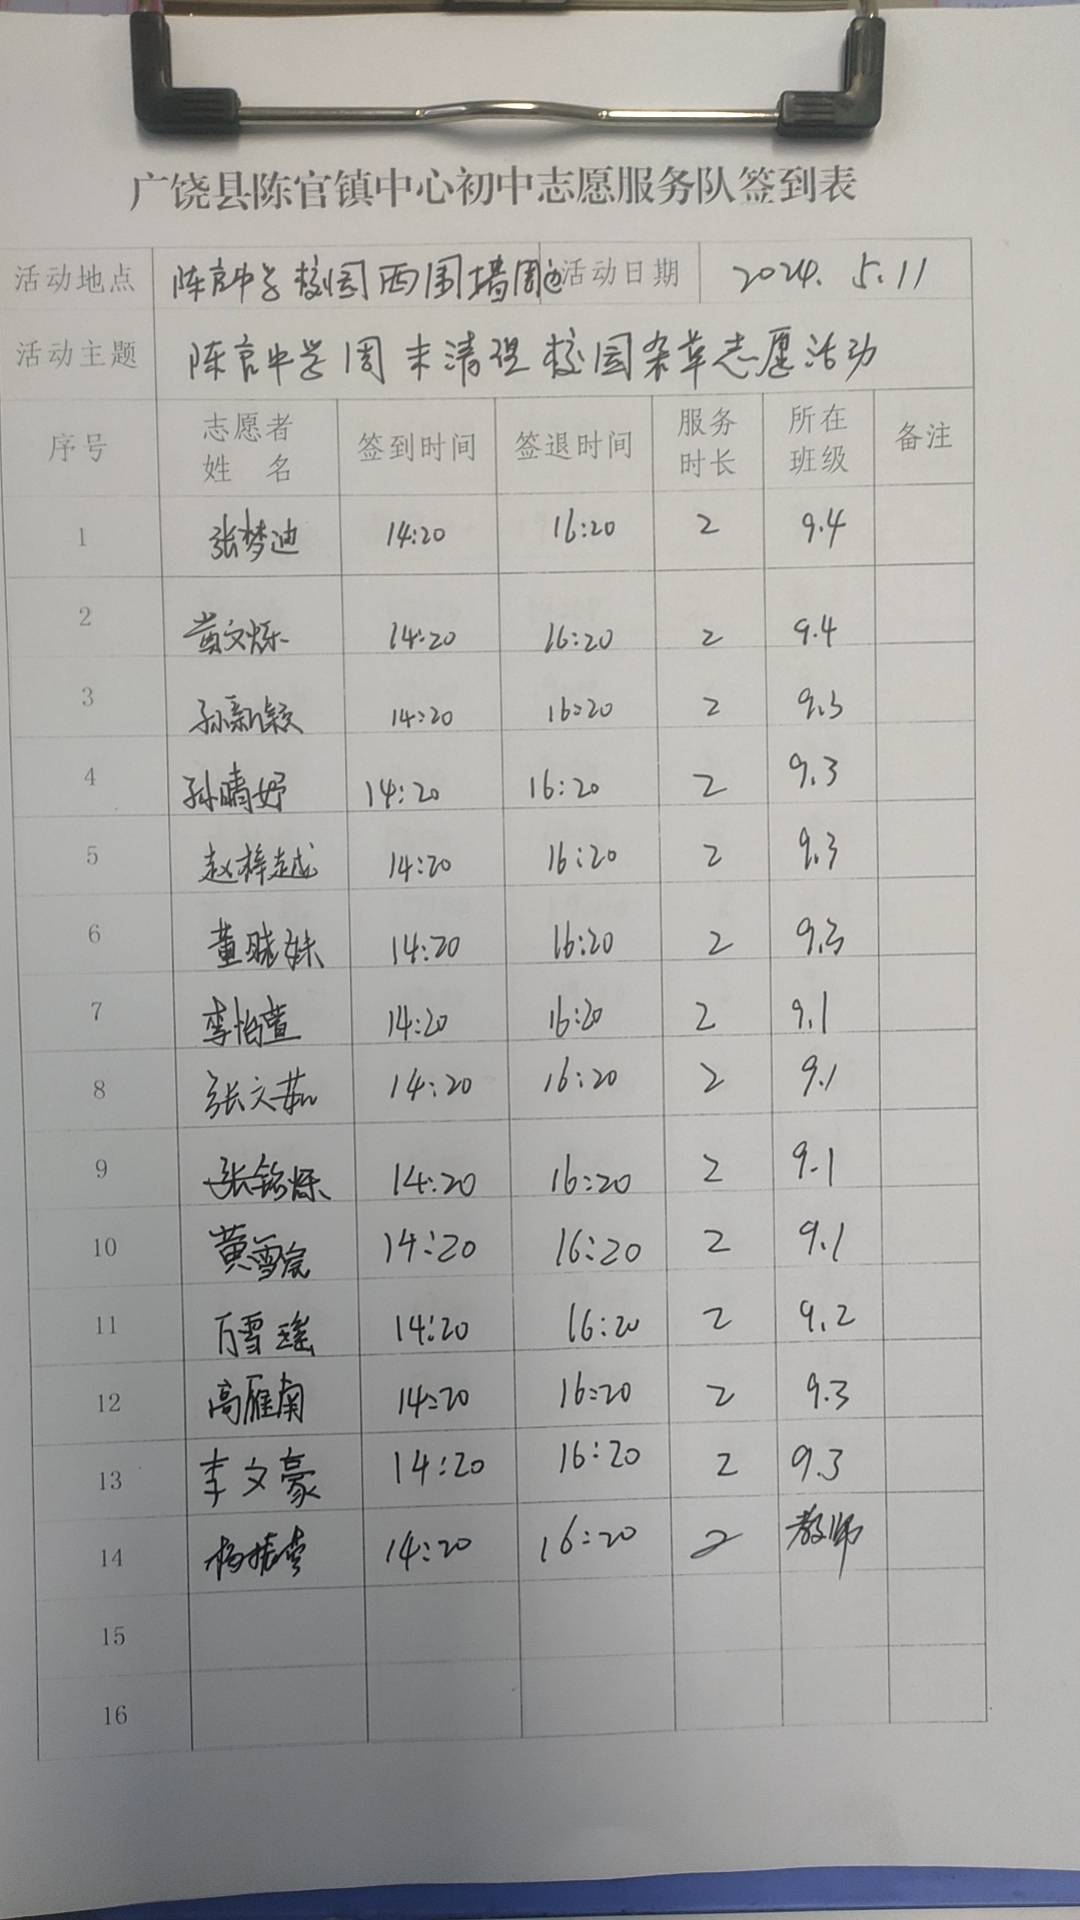 广饶县陈官镇中心初中志愿服务队签到表
活动地点 陈官中学校园西围墙周边 活动日期 2024.5.11
活动主题 陈官中学周末清理校园杂草志愿活动
序号 志愿者姓名 签到时间 签退时间 服务时长 所在班级 备注
1 张梦迪 14:20 16:20 2 9.4
2 黄文烁 14:20 16:20 2 9.4
3 孙新颖 14:20 16:20 2 9.3
4 孙晴妤 14:20 16:20 2 9.3
5 赵梓越 14:20 16:20 2 9.3
6 董晓姝 14:20 16:20 2 9.3
7 李怡萱 14:20 16:20 2 9.1
8 张文茹 14:20 16:20 2 9.1
9 张铭烁 14:20 16:20 2 9.1
10 黄雪 14:20 16:20 2 9.1
11 万雪瑶 14:20 16:20 2 9.2
12 高雁南 14:20 16:20 2 9.3
13 李文豪 14:20 16:20 2 9.3
14 杨振 14:20 16:20 2 教师
15
16